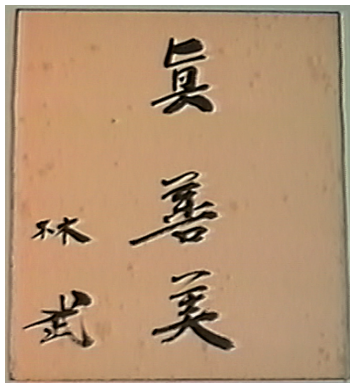 眞善美
林武